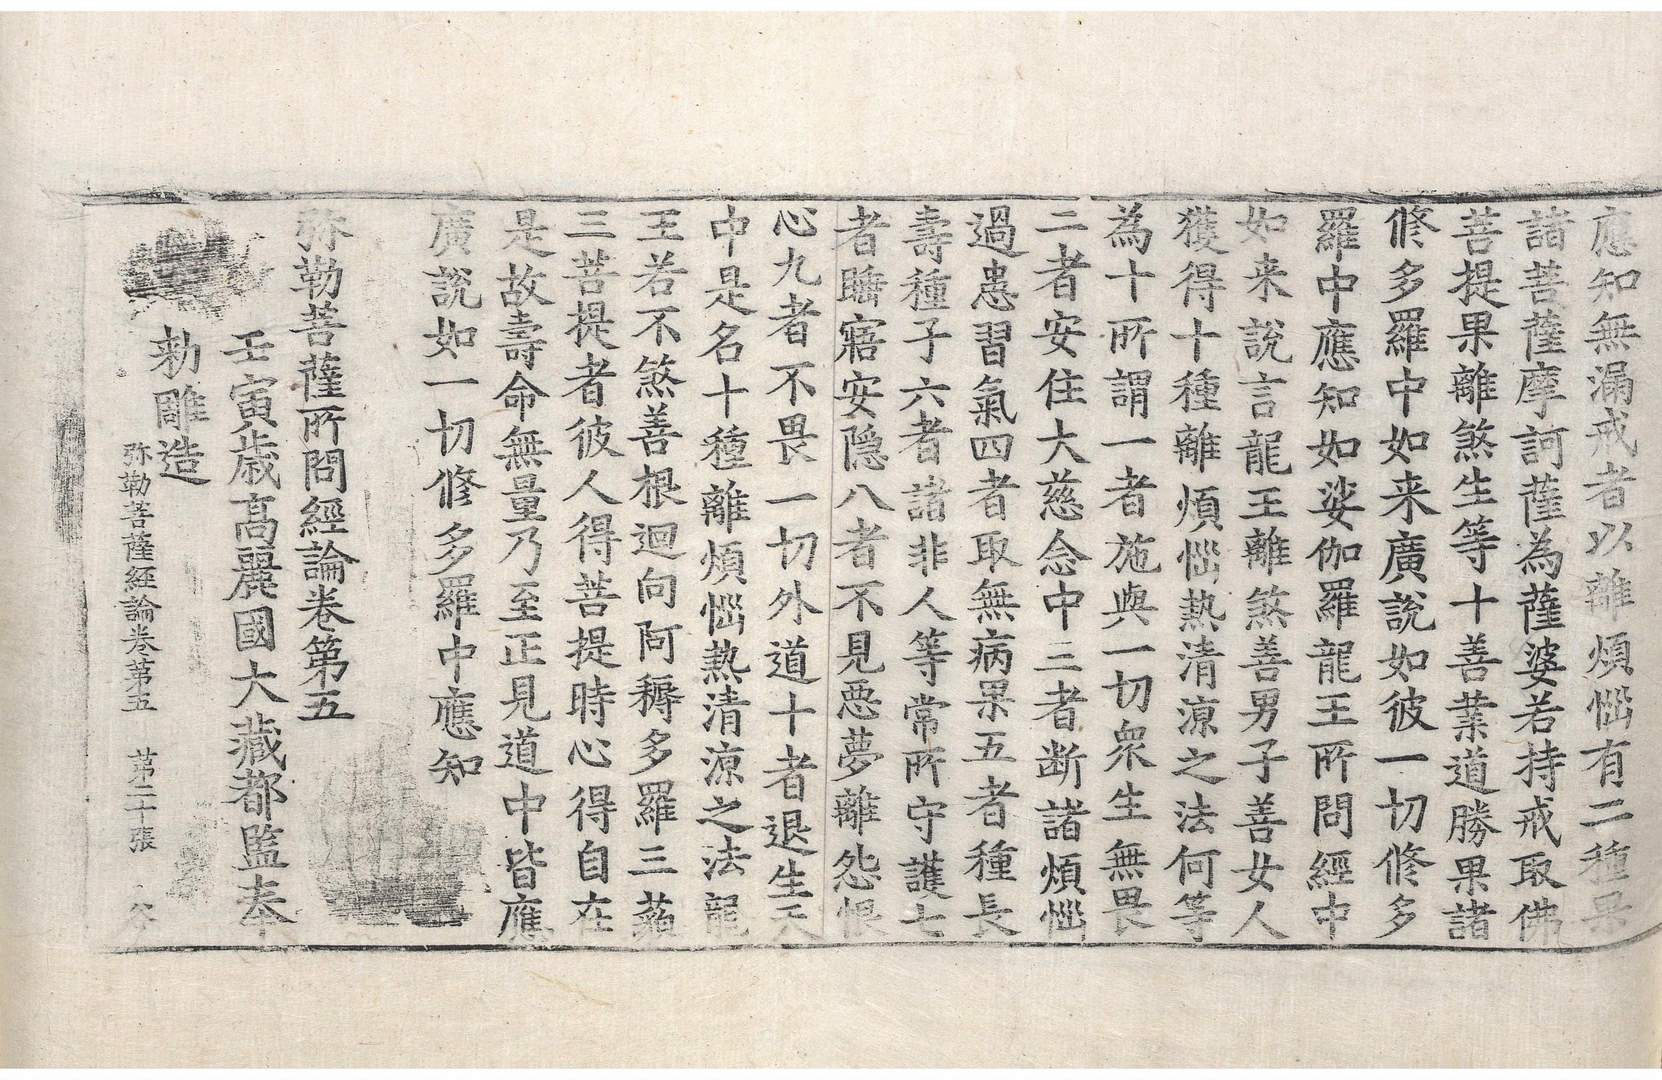 應知無漏戒者以離煩惱有二種果
諸菩薩摩訶薩為薩婆若持戒取佛
菩提果離煞生等十善業道勝果諸
修多羅中如来廣說如彼一切修多
羅中應知如娑伽羅龍王所問經中
如来說言龍王離煞善男子善女人
獲得十種離煩惱熱清涼之法何等
為十所謂一者施與一切衆生無畏
二者安住大慈念中三者断諸煩惱
過患習氣四者取無病果五者種長
壽種子六者諸非人等常所守護七
者睡寤安隠八者不見惡夢離怨恨
心九者不畏一切外道十者退生天
中是名十種離煩惱熱清涼之法龍
王若不煞善根迴向阿耨多羅三藐
三菩提者彼人得菩提時心得自在
是故壽命無量乃至正見道中皆應
廣說如一切修多羅中應知
弥勒菩薩所問經論卷第五
壬寅歳高麗國大藏都監奉
勅雕造
弥勒菩薩經論卷第五 第二十張